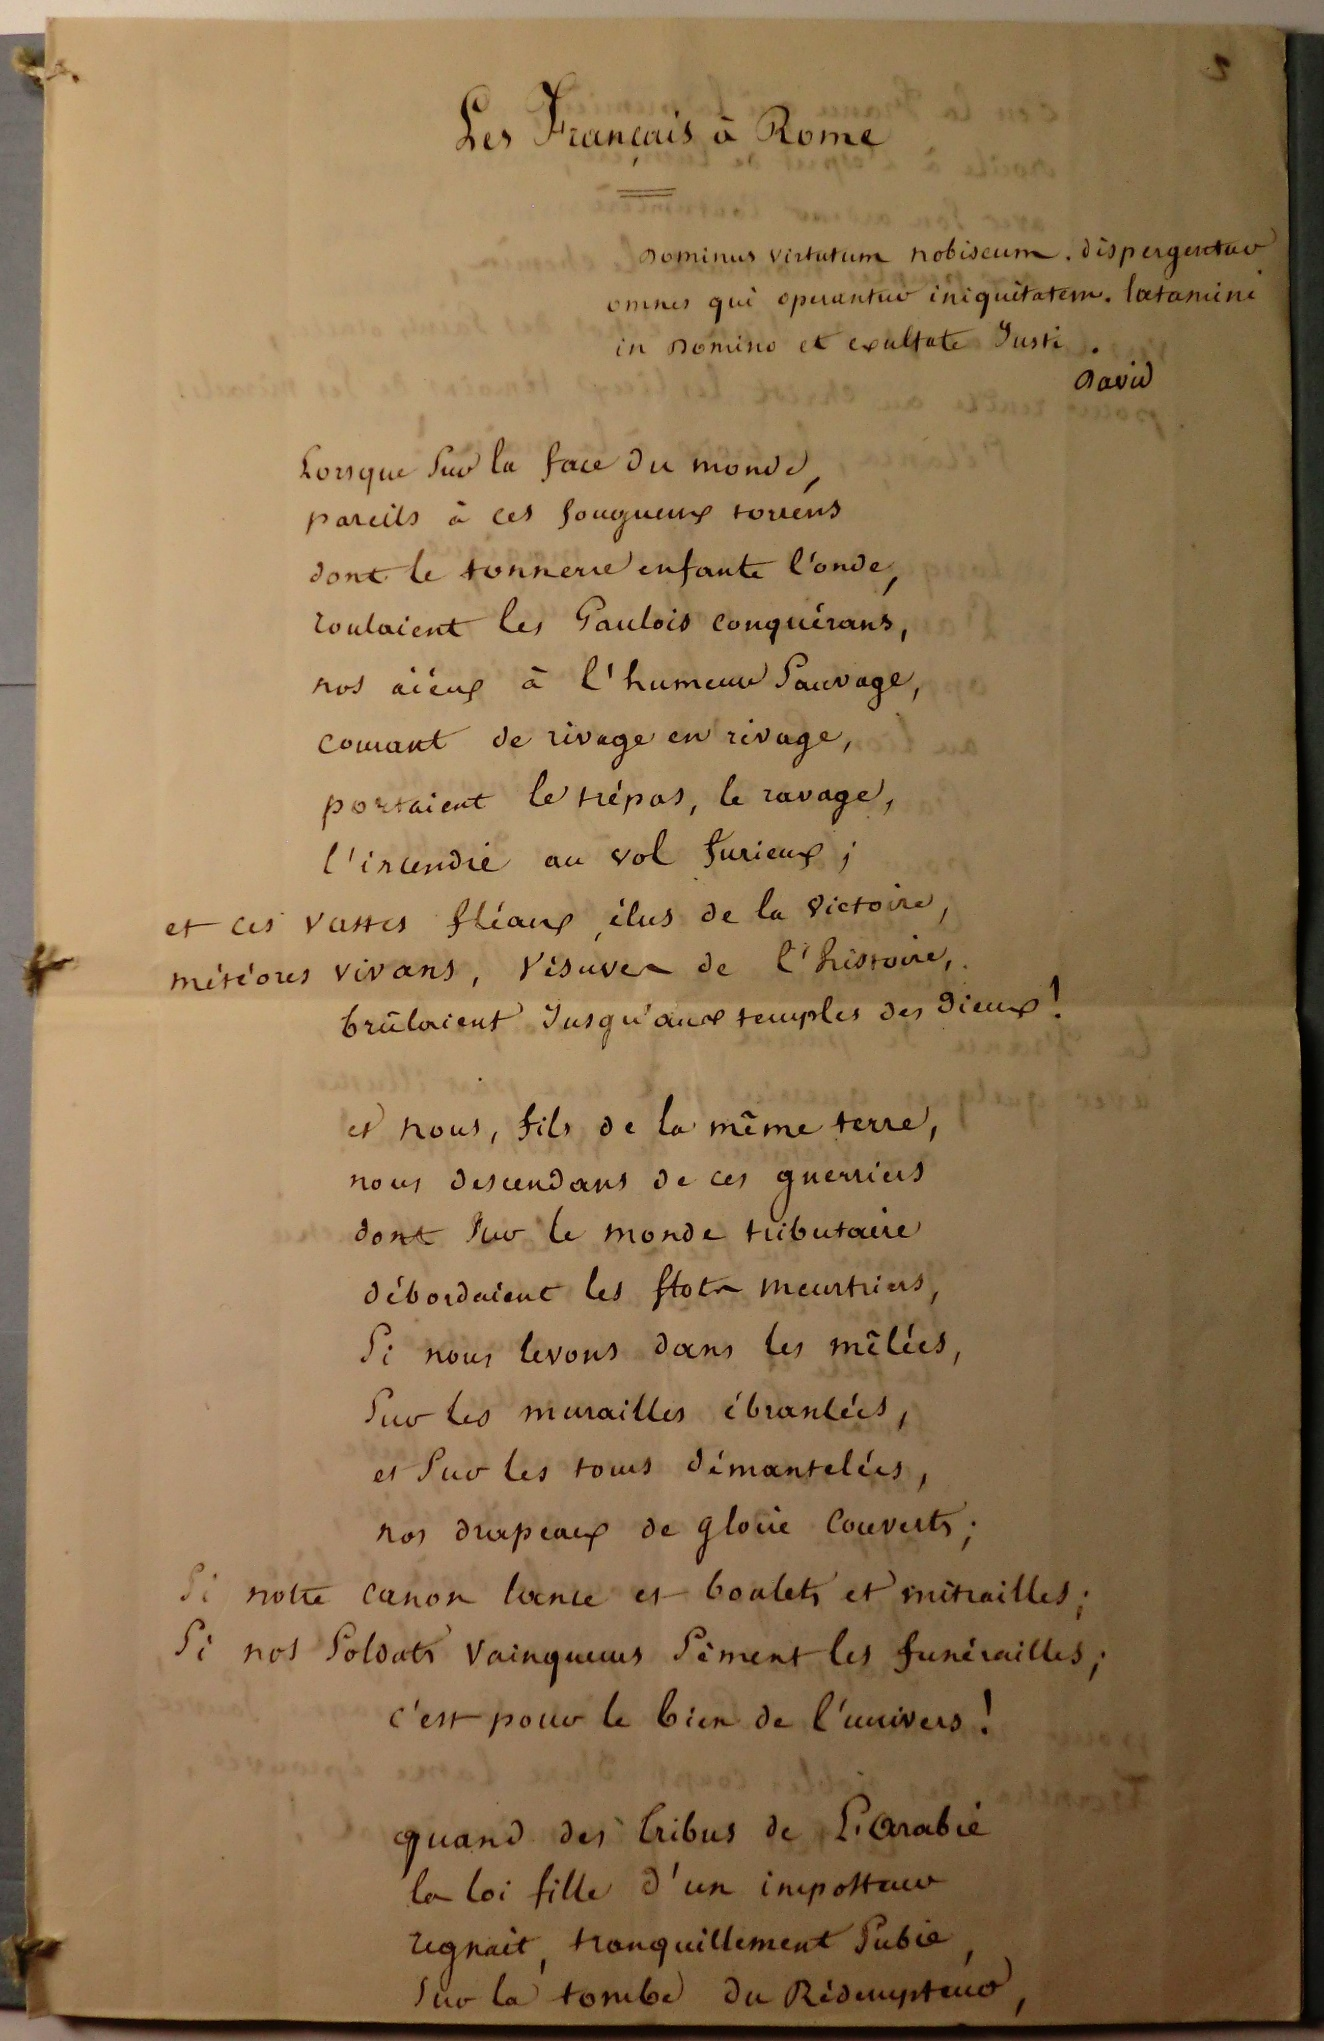 2
Les Français à Rome
Dominus virtutum nobiscum. dispergentur
omnes qui operantur iniquitatem. lætamini
in Domino et exultate Justi.
David
Lorsque sur la face du monde,
pareils à ces fougueux torrens
dont le tonnerre enfante l'onde,
roulaient les Gaulois conquérans,
nos aïeux à l'humeur sauvage,
courant de rivage en rivage,
portaient le trépas, le ravage,
l'incendie au vol furieux;
et ces vastes fléaux, élus de la victoire,
météores vivans, Vésuves de l'histoire,
brûlaient Jusqu'aux temples des Dieux!
et nous, fils de la même terre,
nous descendans de ces guerriers
dont sur le monde tributaire
débordaient les flots meurtriers,
si nous levons dans les mêlées,
sur les murailles ébranlées,
et sur les tours démantelées,
nos drapeaux de gloire couverts;
si notre canon lance et boulets et mitrailles;
si nos soldats vainqueurs sèment les funérailles;
c'est pour le bien de l'univers!
quand des tribus de l'Arabie
la loi fille d'un imposteur
régnait, tranquillement subie,
sur la tombe du Rédempteur,